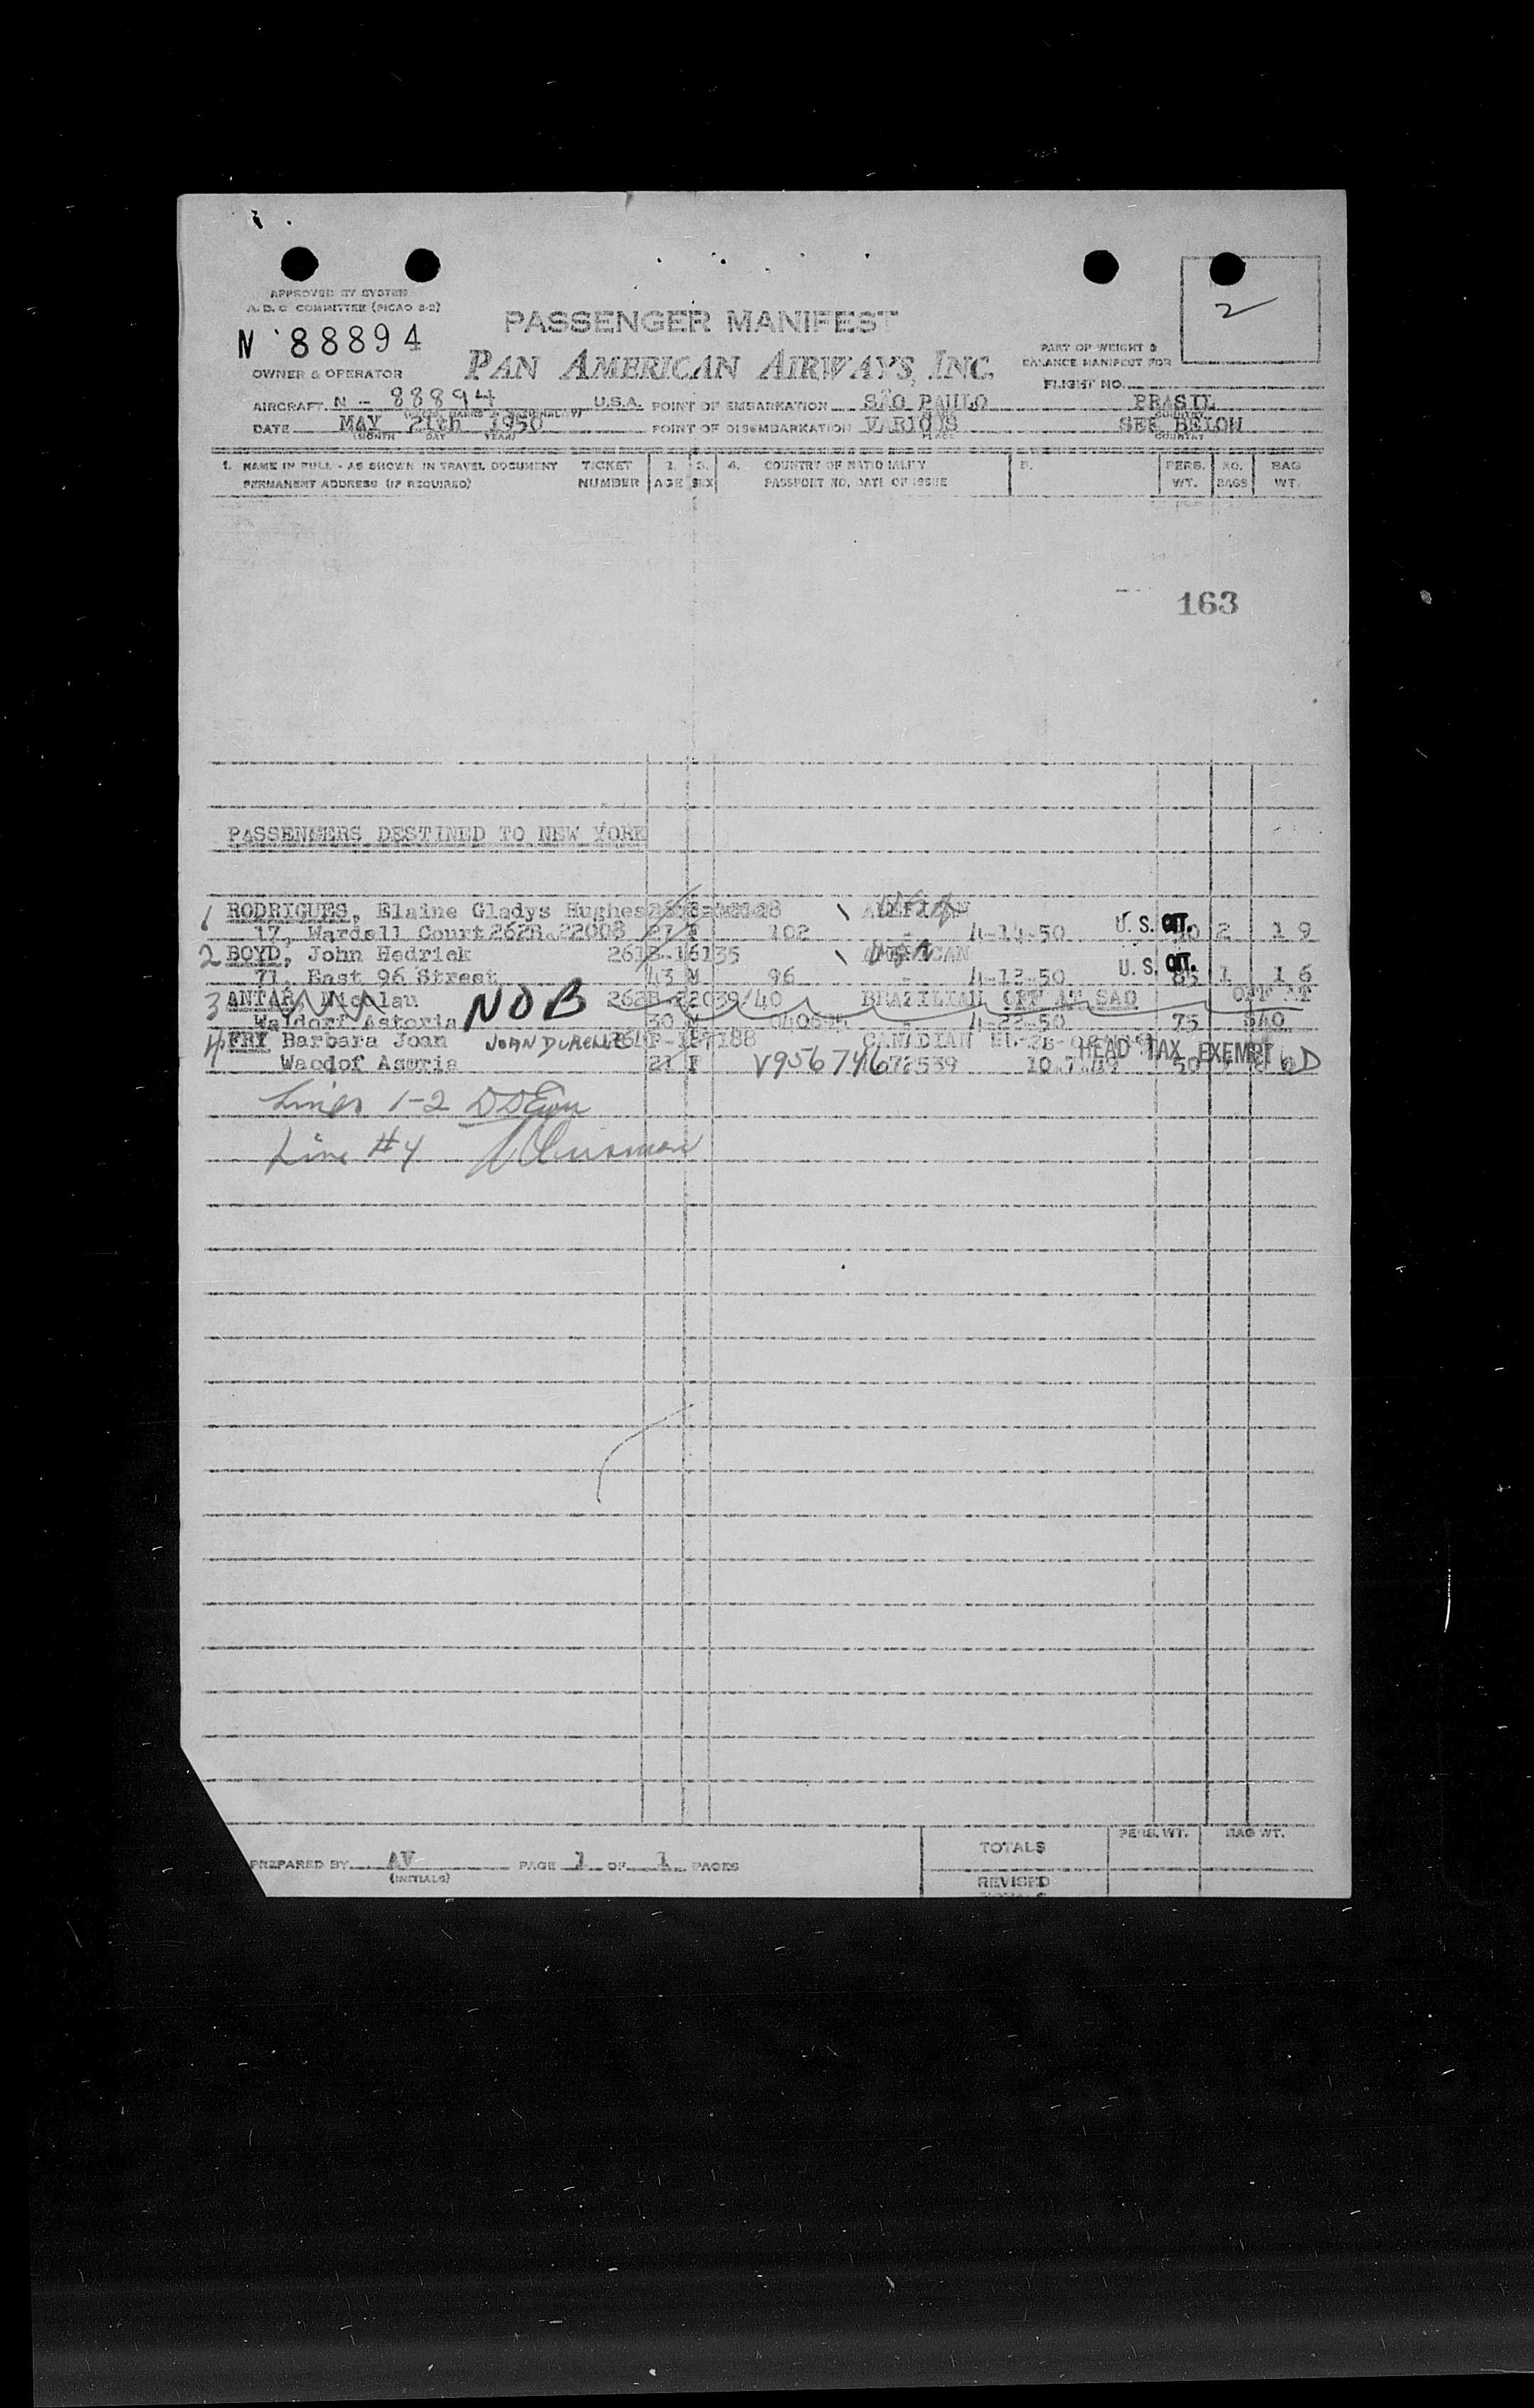 2
APPROVED BY SYSTEM
A.D.C COMMITTEE (PICAO 8-2)
N 88894
PASSENGER MANIFEST
PAN AMERICAN AIRWAYS, INC.
PART OF WEIGHT &
BALANCE MANIFEST FOR
FLIGHT NO.
OWNER & OPERATOR
AIRCRAFT N - 88894 U.S.A. POINT OF EMBARKATION SÃO PAULO BRASIL
DATE MAY 21th 1950 POINT OF DISEMBARKATION VARIOUS SEE BELOW
(MONTH DAY YEAR) PLACE COUNTRY
1. NAME IN FULL - AS SHOWN IN TRAVEL DOCUMENT TICKET 2. 3. 4. COUNTRY OF NATIONALITY 5. PERS. NO. BAG
PERMANENT ADDRESS (IF REQUIRED) NUMBER AGE SEX PASSPORT NO. DATE OF ISSUE WT. BAGS WT.
163
PASSENGERS DESTINED TO NEW YORK
1 RODRIGUES, Elaine Gladys Hughes
17, Wardell Court 262B.22008 21 F 102 - 4-14-50 U. S. CIT. 2 19
2 BOYD, John Hedrick 261B-16135 AMERICAN
71 East 96 Street 43 M 96 - 4-12-50 U. S. CIT. 85 1 16
3 ANTAR, Nicolau NOB 262B 22039/40 BRAZILIAN OFF AT SAO OFF AT
Waldorf Astoria 30 M - 4-22-50 75 SAO
4 FRY Barbara Joan JOAN DURELLE CANADIAN
Wacdof Asoria 21 F V956746 72539 10.7.49 HEAD TAX EXEMPT 50
Lines 1-2
Line #4
PREPARED BY AV PAGE 1 OF 1 PAGES
(INITIALS)
TOTALS PERS. WT. BAG WT.
REVISED